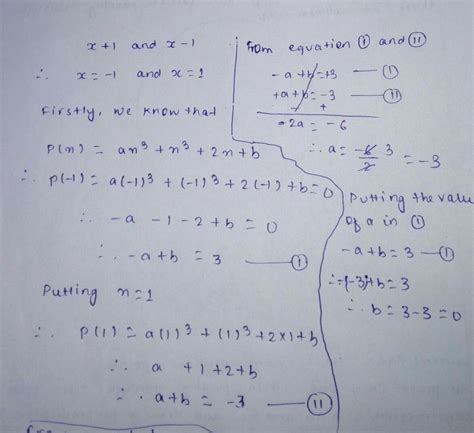 x+1 and x-1
∴ x=-1 and x=1
Firstly, we know that
P(n) = an³+n³+2n+b
∴ P(-1)= a(-1)³+(-1)³+2(-1)+b=0
∴ -a-1-2+b=0
∴ -a+b = 3 — (I)
Putting n=1
∴ P(1) = a(1)³+(1)³+2×1+b
∴ a+1+2+b
∴ a+b = -3 — (II)
from equation (I) and (II)
-a+b=+3 — (I)
+a+b=-3 — (II)
- - +
-2a = -6
∴ a = -6/2 3 = -3
Putting the value
of a in (I)
-a+b=3 — (I)
∴ -(-3)+b=3
∴ b=3-3=0